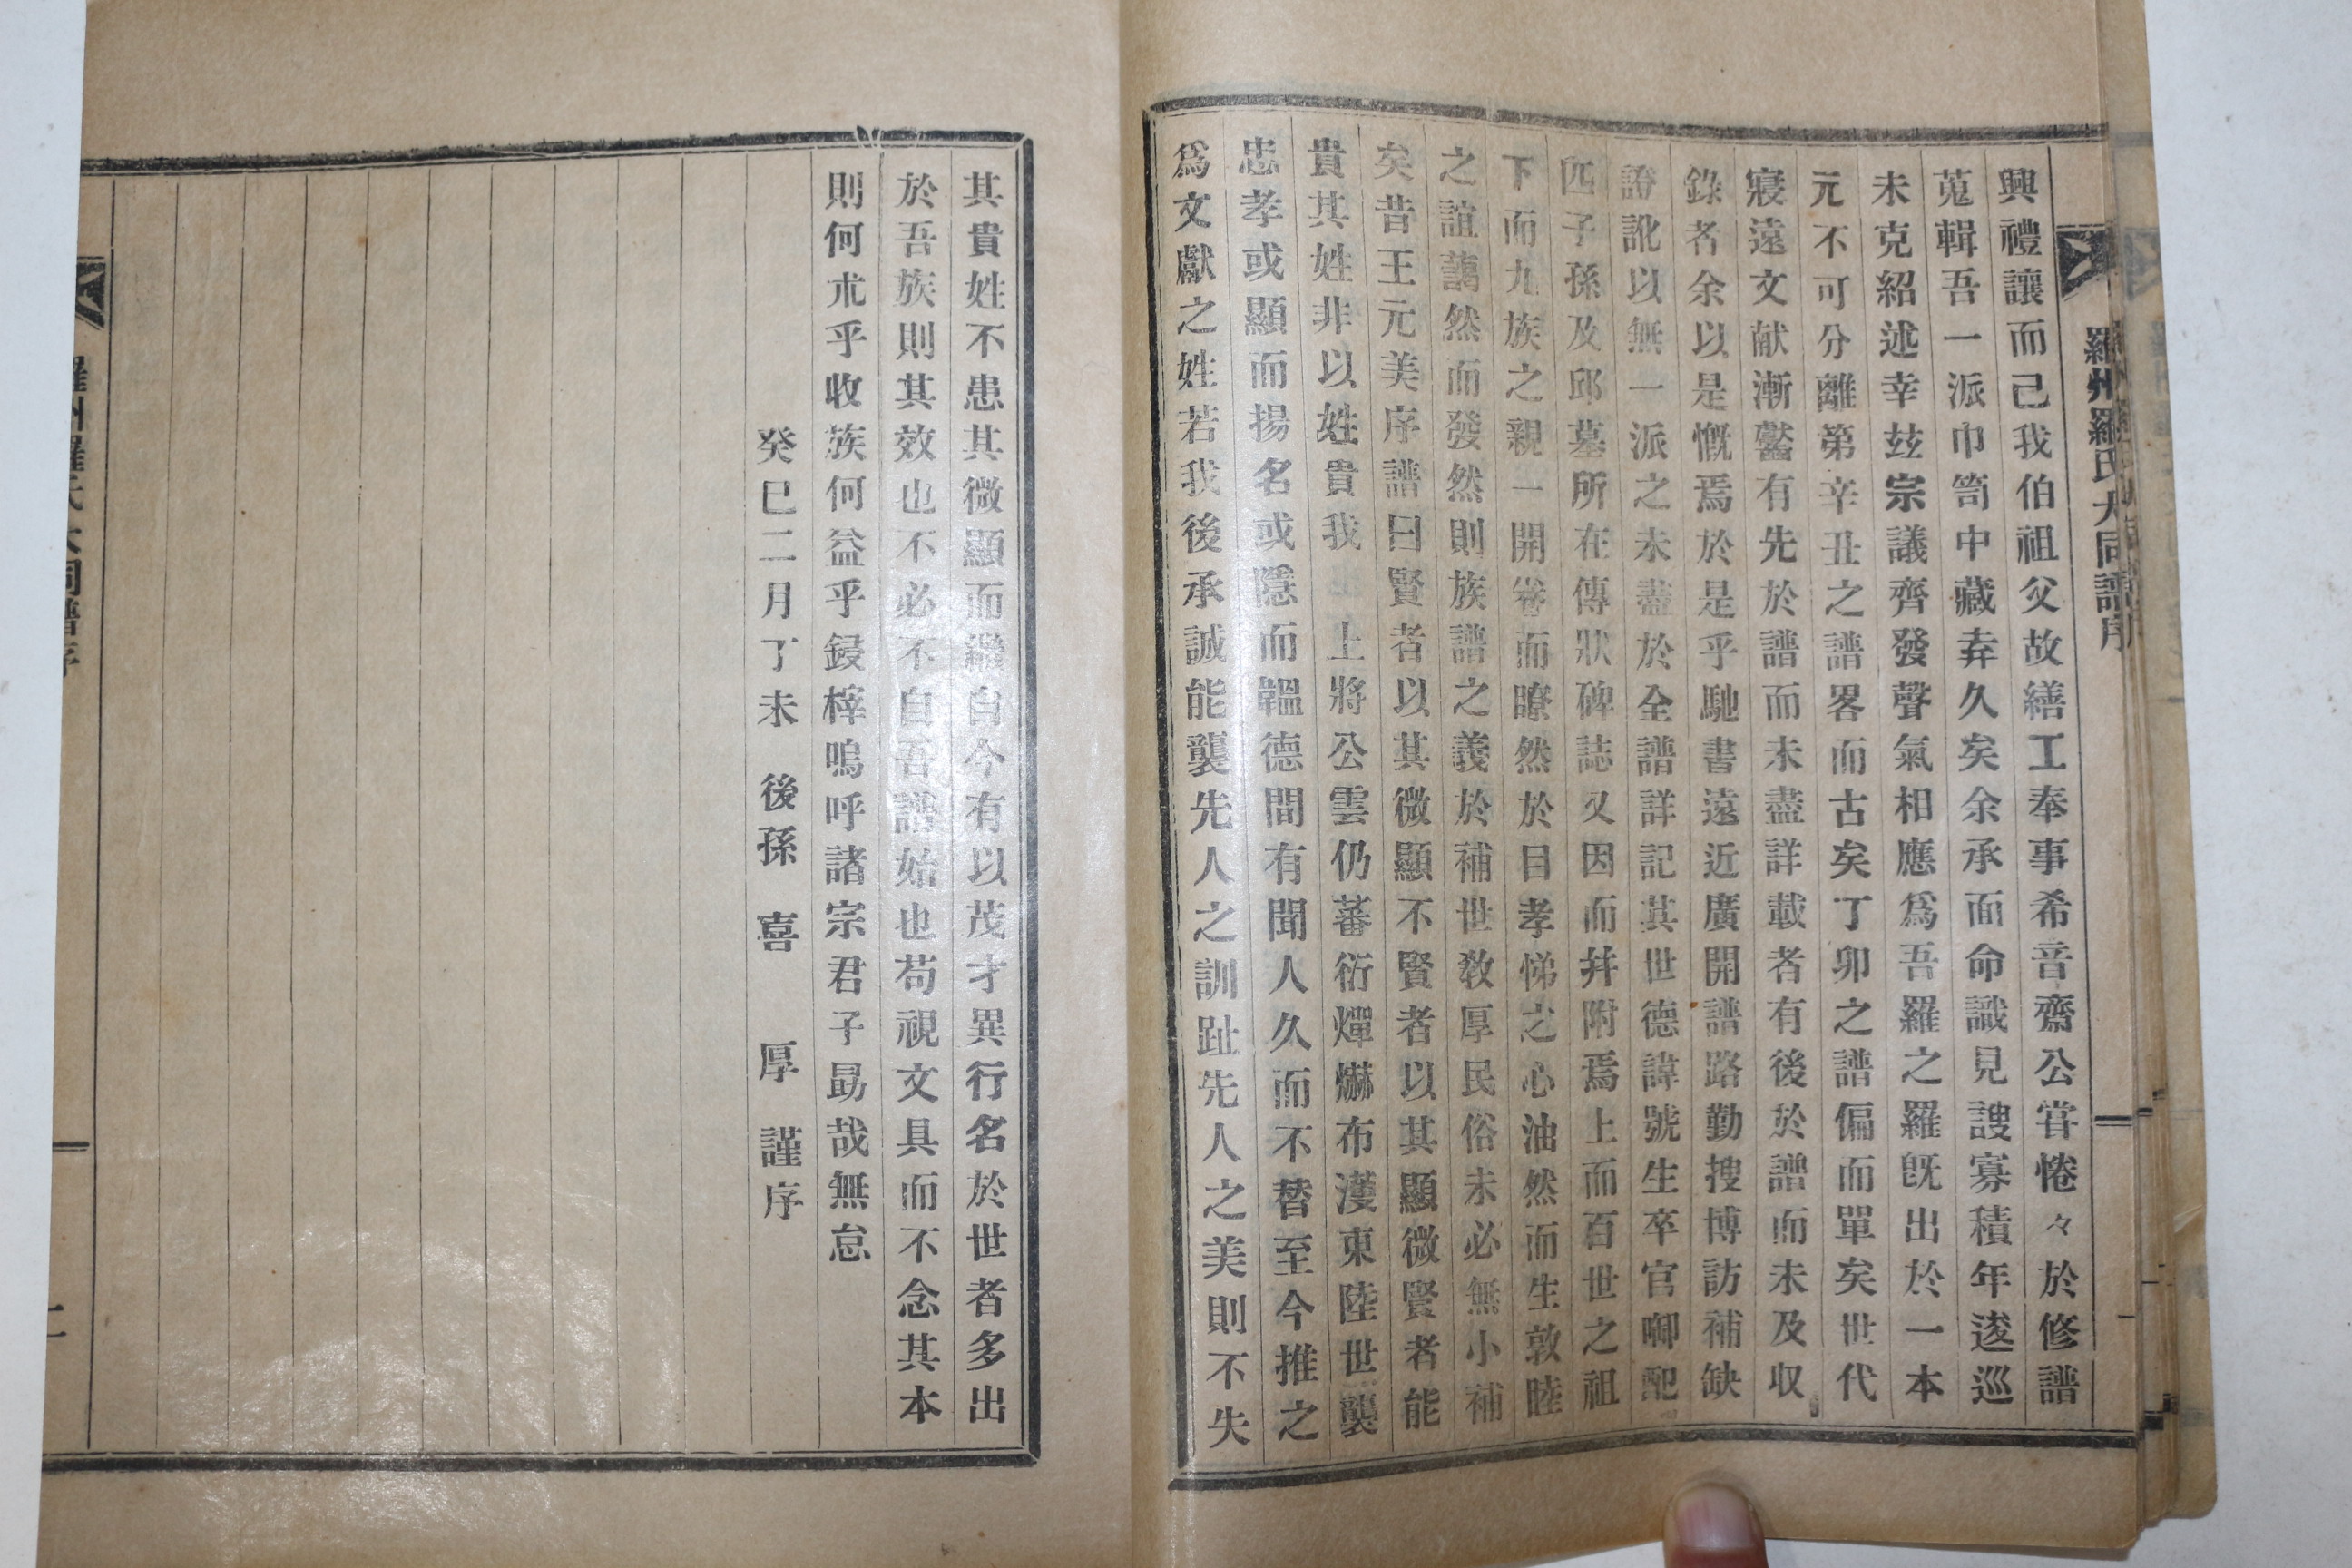 羅州羅氏大同譜序
興禮讓而己我伯祖父故繕工奉事希音齋公甞惓々於修譜
蒐輯吾一派巾笥中藏弆久矣余承面命識見謏寡積年逡巡
未克紹述幸玆宗議齊發聲氣相應爲吾羅之羅旣出於一本
元不可分離第辛丑之譜畧而古矣丁卯之譜偏而單矣世代
寢遠文献漸齾有先於譜而未盡詳載者有後於譜而未及収
錄者余以是慨焉於是乎馳書遠近廣開譜路勤搜博訪補缺
證訛以無一派之未盡於全譜詳記其世德諱號生卒官啣配
匹子孫及邱墓所在傳狀碑誌又因而幷附焉上而百世之祖
下而九族之親一開卷而瞭然於目孝悌之心油然而生敦睦
之誼藹然而發然則族譜之義於補世敎厚民俗未必無小補
矣昔王元美序譜曰賢者以其微顯不賢者以其顯微賢者能
貴其姓非以姓貴我 上將公雲仍蕃衍燀爀布濩東陸世襲
忠孝或顯而揚名或隱而韞德間有聞人久而不替至今推之
爲文獻之姓若我後承誠能襲先人之訓趾先人之美則不失
其貴姓不患其微顯而繼自今有以茂才異行名於世者多出
於吾族則其效也不必不自吾譜始也苟視文具而不念其本
則何朮乎收族何益乎鋟梓嗚呼諸宗君子勗哉無怠
癸巳二月丁未 後孫 喜 厚 謹序
羅州羅氏大同譜序